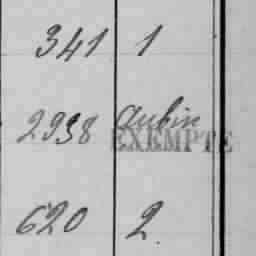 341 1
2938 Aubin
EXEMPTE
620 2